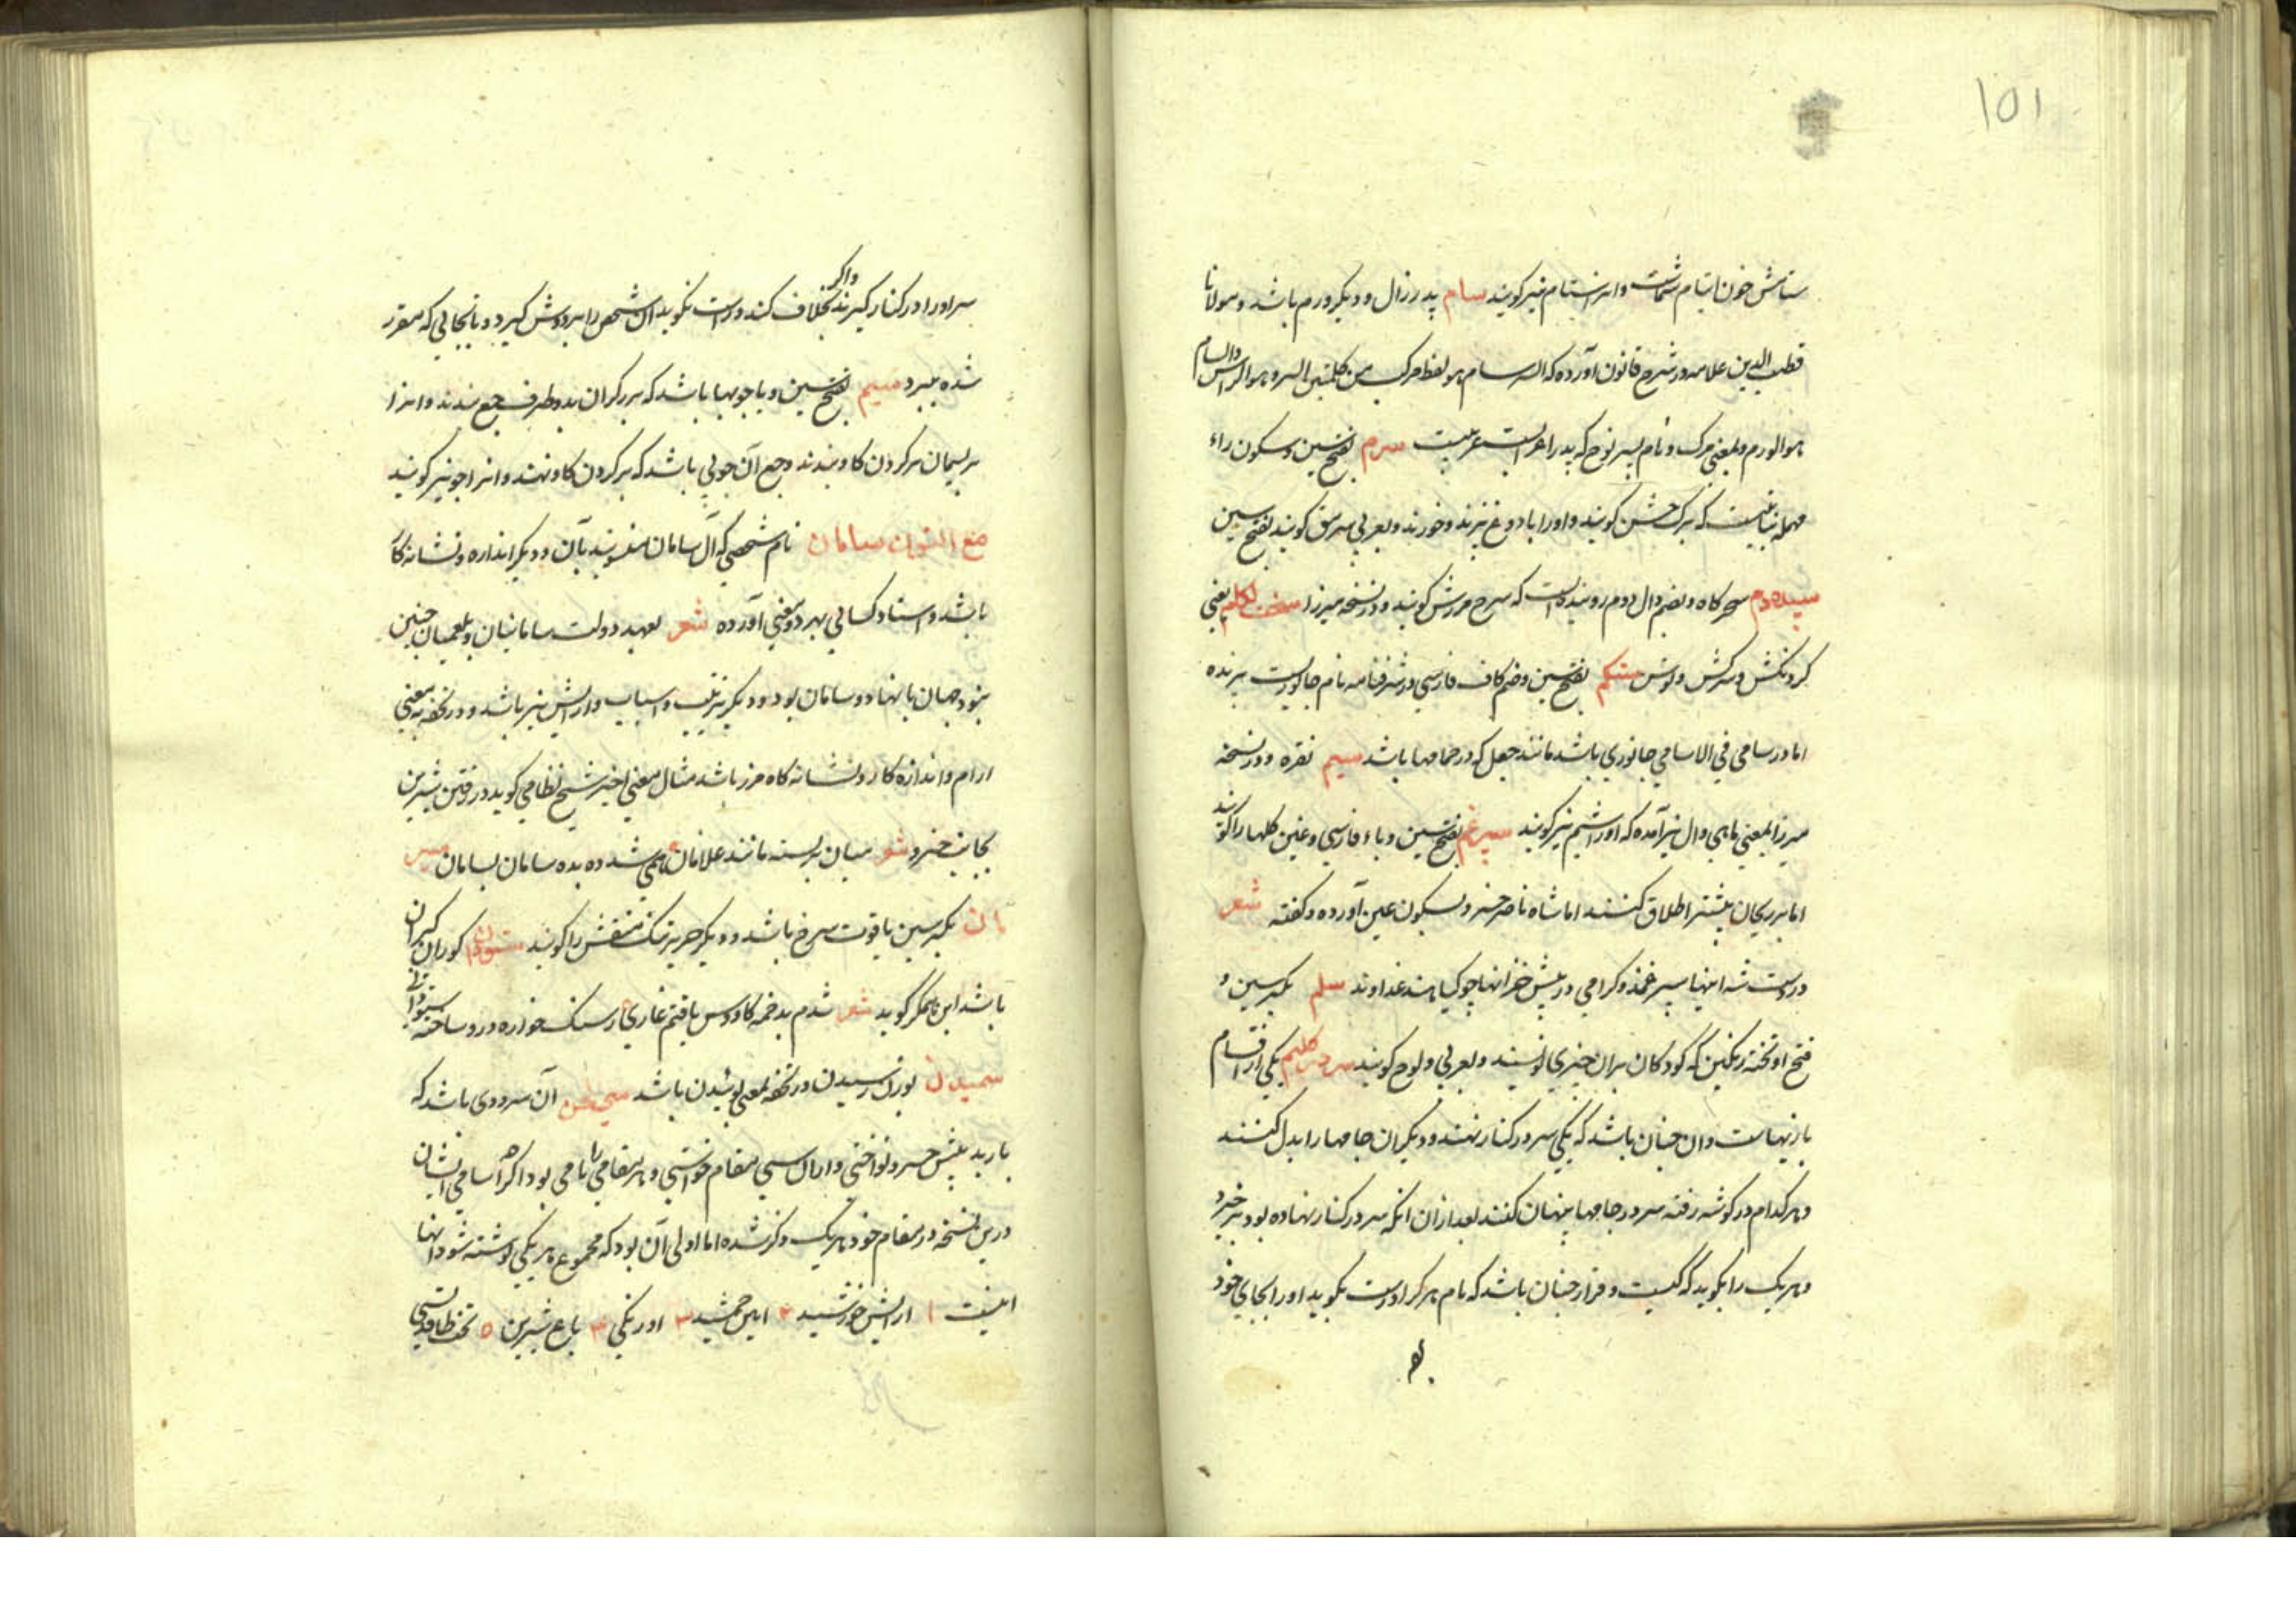 ۱۵۱
ستانش خون آشام شماست و انرا ستام نیز کویند سام پدر زال و دیکر ورم باشد و مولانا
قطب الدین علامه در شرح قانون آورده که السرسام هو لفظ مرکب من کلمتین السر و هو الراس والسام
هو الورم و بمعنی مرک و نام پسر نوح که پدر اعراب است عربیت سرم بفتح سین و سکون راء
مهمله نباتیست که برک کویند و اورا با دوغ پزند و خورند و بعربی سرمق کویند بفتح سین
سپیده دم سحرکاه و بضم دال دوم روینده است که سرخ مرزش کویند و در نسخه میرزا سخت لکام یعنی
کردنکش و سرکش و توسن ستکم بفتح سین و ضم کاف فارسی در شرفنامه نام جانوریست پرنده
اما در سامی فی الاسامی جانوری باشد مانند جعل که در حمامها باشد سیم نقره و در نسخه
میرزا بمعنی ماهی وال نیز آمده که اورا شیم نیز کویند سپرغم بفتح سین و باء فارسی و غین کلها را کویند
اما بر ریحان بیشتر اطلاق کنند اما شاه ناصر خسرو بسکون عین آورده و کفته شعر
درست شد اینها سپرغمند و کرامی در پیش خر انها چو کیاهند غذاوند سلم بکسر سین و
فتح او تخته رنکین که کودکان بران چیزی نویسند و بعربی لوح کویند سر در کلیم یکی از اقسام
بازیهاست وان چنان باشد که یکی سر در کنار نهند و دیکران جامها را بدل کنند
و هر کدام در کوشه رفته سر در جامها پنهان کنند بعد ازان انکه سر در کنار نهاده بود برخیزد
و هر یک را بکوید که کیست و قرار چنان باشد که نام هر کرا درست بکوید اورا بجای خود
سر اورا در کنار کیرند واکر بخلاف کند و راست نکوید آن شخص را بر دوش کیرد و تا بجائی که مقرر
شده ببرد سیم بفتح سین و یا چوبها باشد که برزکران بدو طرف جمع بندند و انرا
بریسمان بر کردن کاو بندند و جمع آن چوبی باشد که بر کردن کاو نهند و انرا جو نیز کویند
مع النون سامان نام شخصی که آل سامان منسوبند بآن و دیکر اندازه و نشانه کاه
باشد و استاد کسائی بهر دو معنی آورده شعر بعهد دولت سامانیان و بلعمیان چنین
نبود جهان با نهاد و سامان بود و دیکر ترتیب و اسباب و آرایش نیز باشد و در تحفه بمعنی
ارام و اندازه کار و نشانه کاه مرز باشد مثال معنی اخیر شیخ نظامی کوید در رفتن شیرین
بجانب خسرو شعر میان بربسته مانند غلامان همی شد ده بده سامان بسامان
بکسر سین یاقوت سرخ باشد و دیکر حریر تنک منقش را کویند ستودان کوران کبران
باشد ابن یمین کوید شعر شدم بدخمه کاووس یافتم غاری ز سنک خواره درو ساخته ستودانی
بوزن رسیدن در تحفه بمعنی بوئیدن باشد سی لحن آن سرودی باشد که
باربد پیش خسرو نواختی و از ان سی مقام خواستی و هر مقامی را نامی بود اکر چه اسامی ایشان
درین نسخه در مقام خود هر یک ذکر شده اما اولی آن بود که مجموع هر یکی نوشته شود انها
اینست ۱ ارایش خورشید ۲ آیین جمشید ۳ اورنکی ۴ باغ شیرین ۵ تخت طاقدیسی